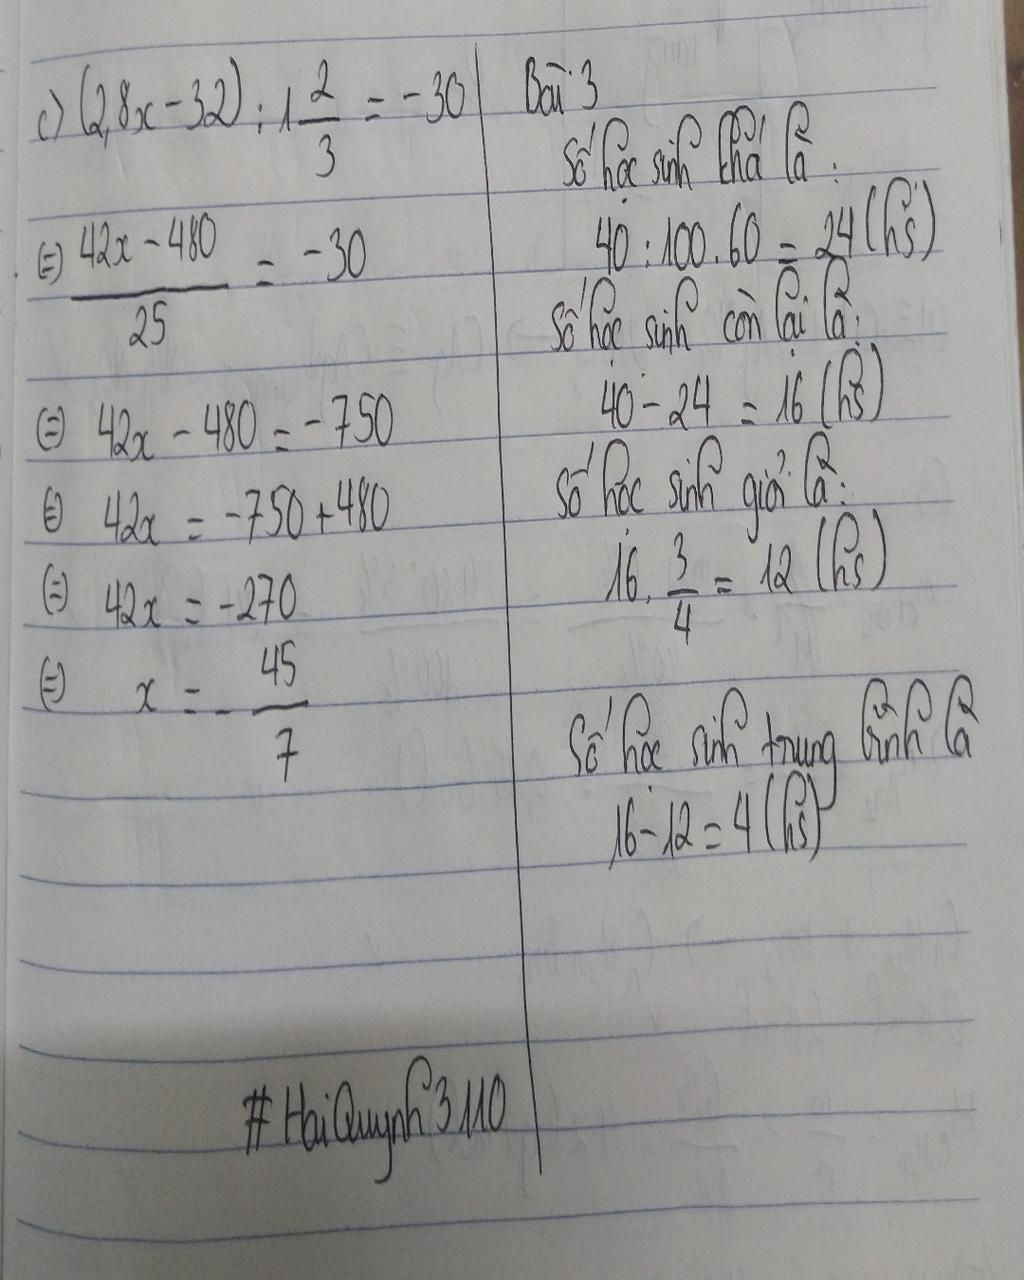 c) (2,8x - 32) : 1 2/3 = -30
(=) (42x - 480)/25 = -30
(=) 42x - 480 = -750
(=) 42x = -750 + 480
(=) 42x = -270
(=) x = - 45/7
#HaiQuynh3110
Bài 3
Số học sinh khá là :
40 : 100 . 60 = 24 (hs)
Số học sinh còn lại là :
40 - 24 = 16 (hs)
Số học sinh giỏi là :
16 . 3/4 = 12 (hs)
Số học sinh trung bình là
16 - 12 = 4 (hs)